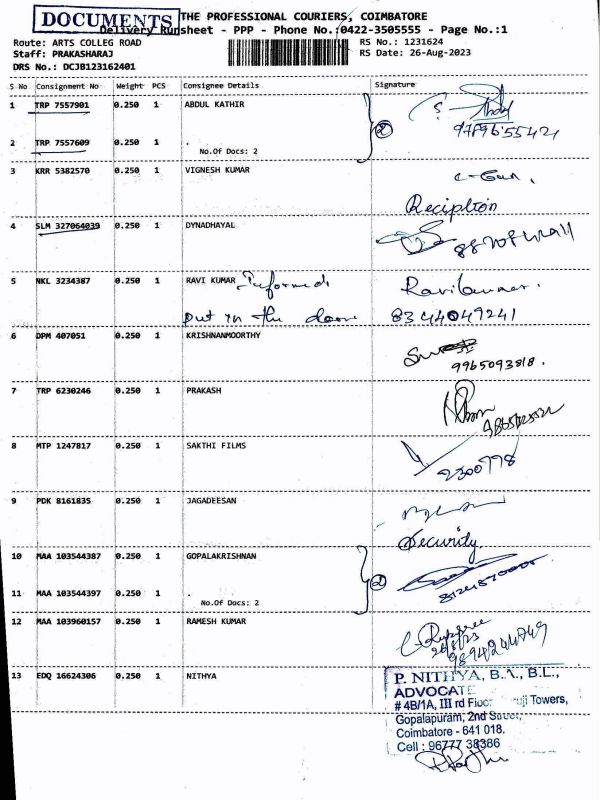 DOCUMENTS
THE PROFESSIONAL COURIERS, COIMBATORE
Delivery Runsheet - PPP - Phone No.:0422-3505555 - Page No.:1
Route: ARTS COLLEG ROAD
RS No.: 1231624
Staff: PRAKASHARAJ
RS Date: 26-Aug-2023
DRS No.: DCJB123162401
S No Consignment No Weight PCS Consignee Details Signature
1 TRP 7557901 0.250 1 ABDUL KATHIR
2
2 TRP 7557609 0.250 1 .
No.Of Docs: 2
3 KRR 5382570 0.250 1 VIGNESH KUMAR
Reciption
4 SLM 327064039 0.250 1 DYNADHAYAL
5 NKL 3234387 0.250 1 RAVI KUMAR Informed Ravikumar.
put in the door 8344049241
6 DPM 407051 0.250 1 KRISHNANMOORTHY
9965093818.
7 TRP 6230246 0.250 1 PRAKASH
8 MTP 1247817 0.250 1 SAKTHI FILMS
2300778
9 PDK 8161835 0.250 1 JAGADEESAN
Security
10 MAA 103544387 0.250 1 GOPALAKRISHNAN
2
11 MAA 103544397 0.250 1 .
No.Of Docs: 2
12 MAA 103960157 0.250 1 RAMESH KUMAR
26/8/23
9894244749
13 EDQ 16624306 0.250 1 NITHYA
P. NITHYA, B.A., B.L.,
ADVOCATE
# 4B/1A, III rd Floor Towers,
Gopalapuram, 2nd Street,
Coimbatore - 641 018.
Cell : 96777 38386